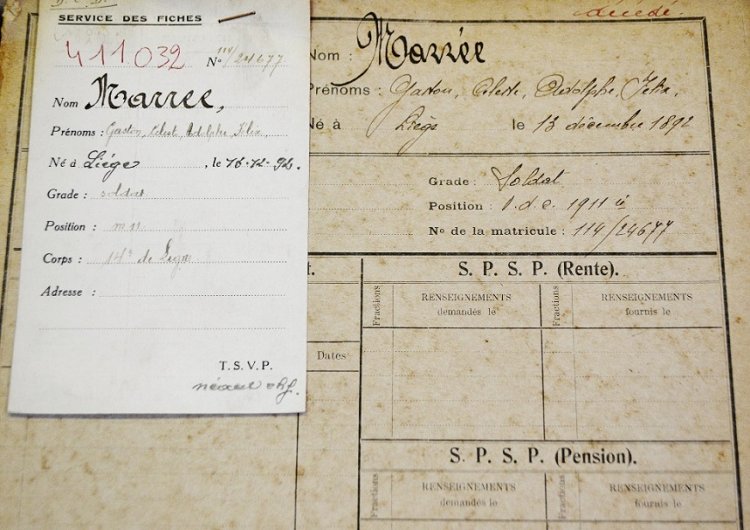 SERVICE DES FICHES
411032 No 114/24677
Nom Marrée,
Prénoms : Gaston, Celest Adolphe Félix
Né à Liège, le 16-12-92.
Grade : soldat
Position :
Corps : 14e de Ligne
Adresse :
T.S.V.P.
décédé
Nom : Marrée
Prénoms : Gaston, Celeste, Adolphe, Felix
Né à Liége le 13 décembre 1892
Grade : Soldat
Position : 1.d.e. 1911 à
No de la matricule : 114/24677
t.
Dates
S. P. S. P. (Rente).
Fractions
RENSEIGNEMENTS
demandés le
Fractions
RENSEIGNEMENTS
fournis le
S. P. S. P. (Pension).
Fractions
RENSEIGNEMENTS
demandés le
Fractions
RENSEIGNEMENTS
fournis le